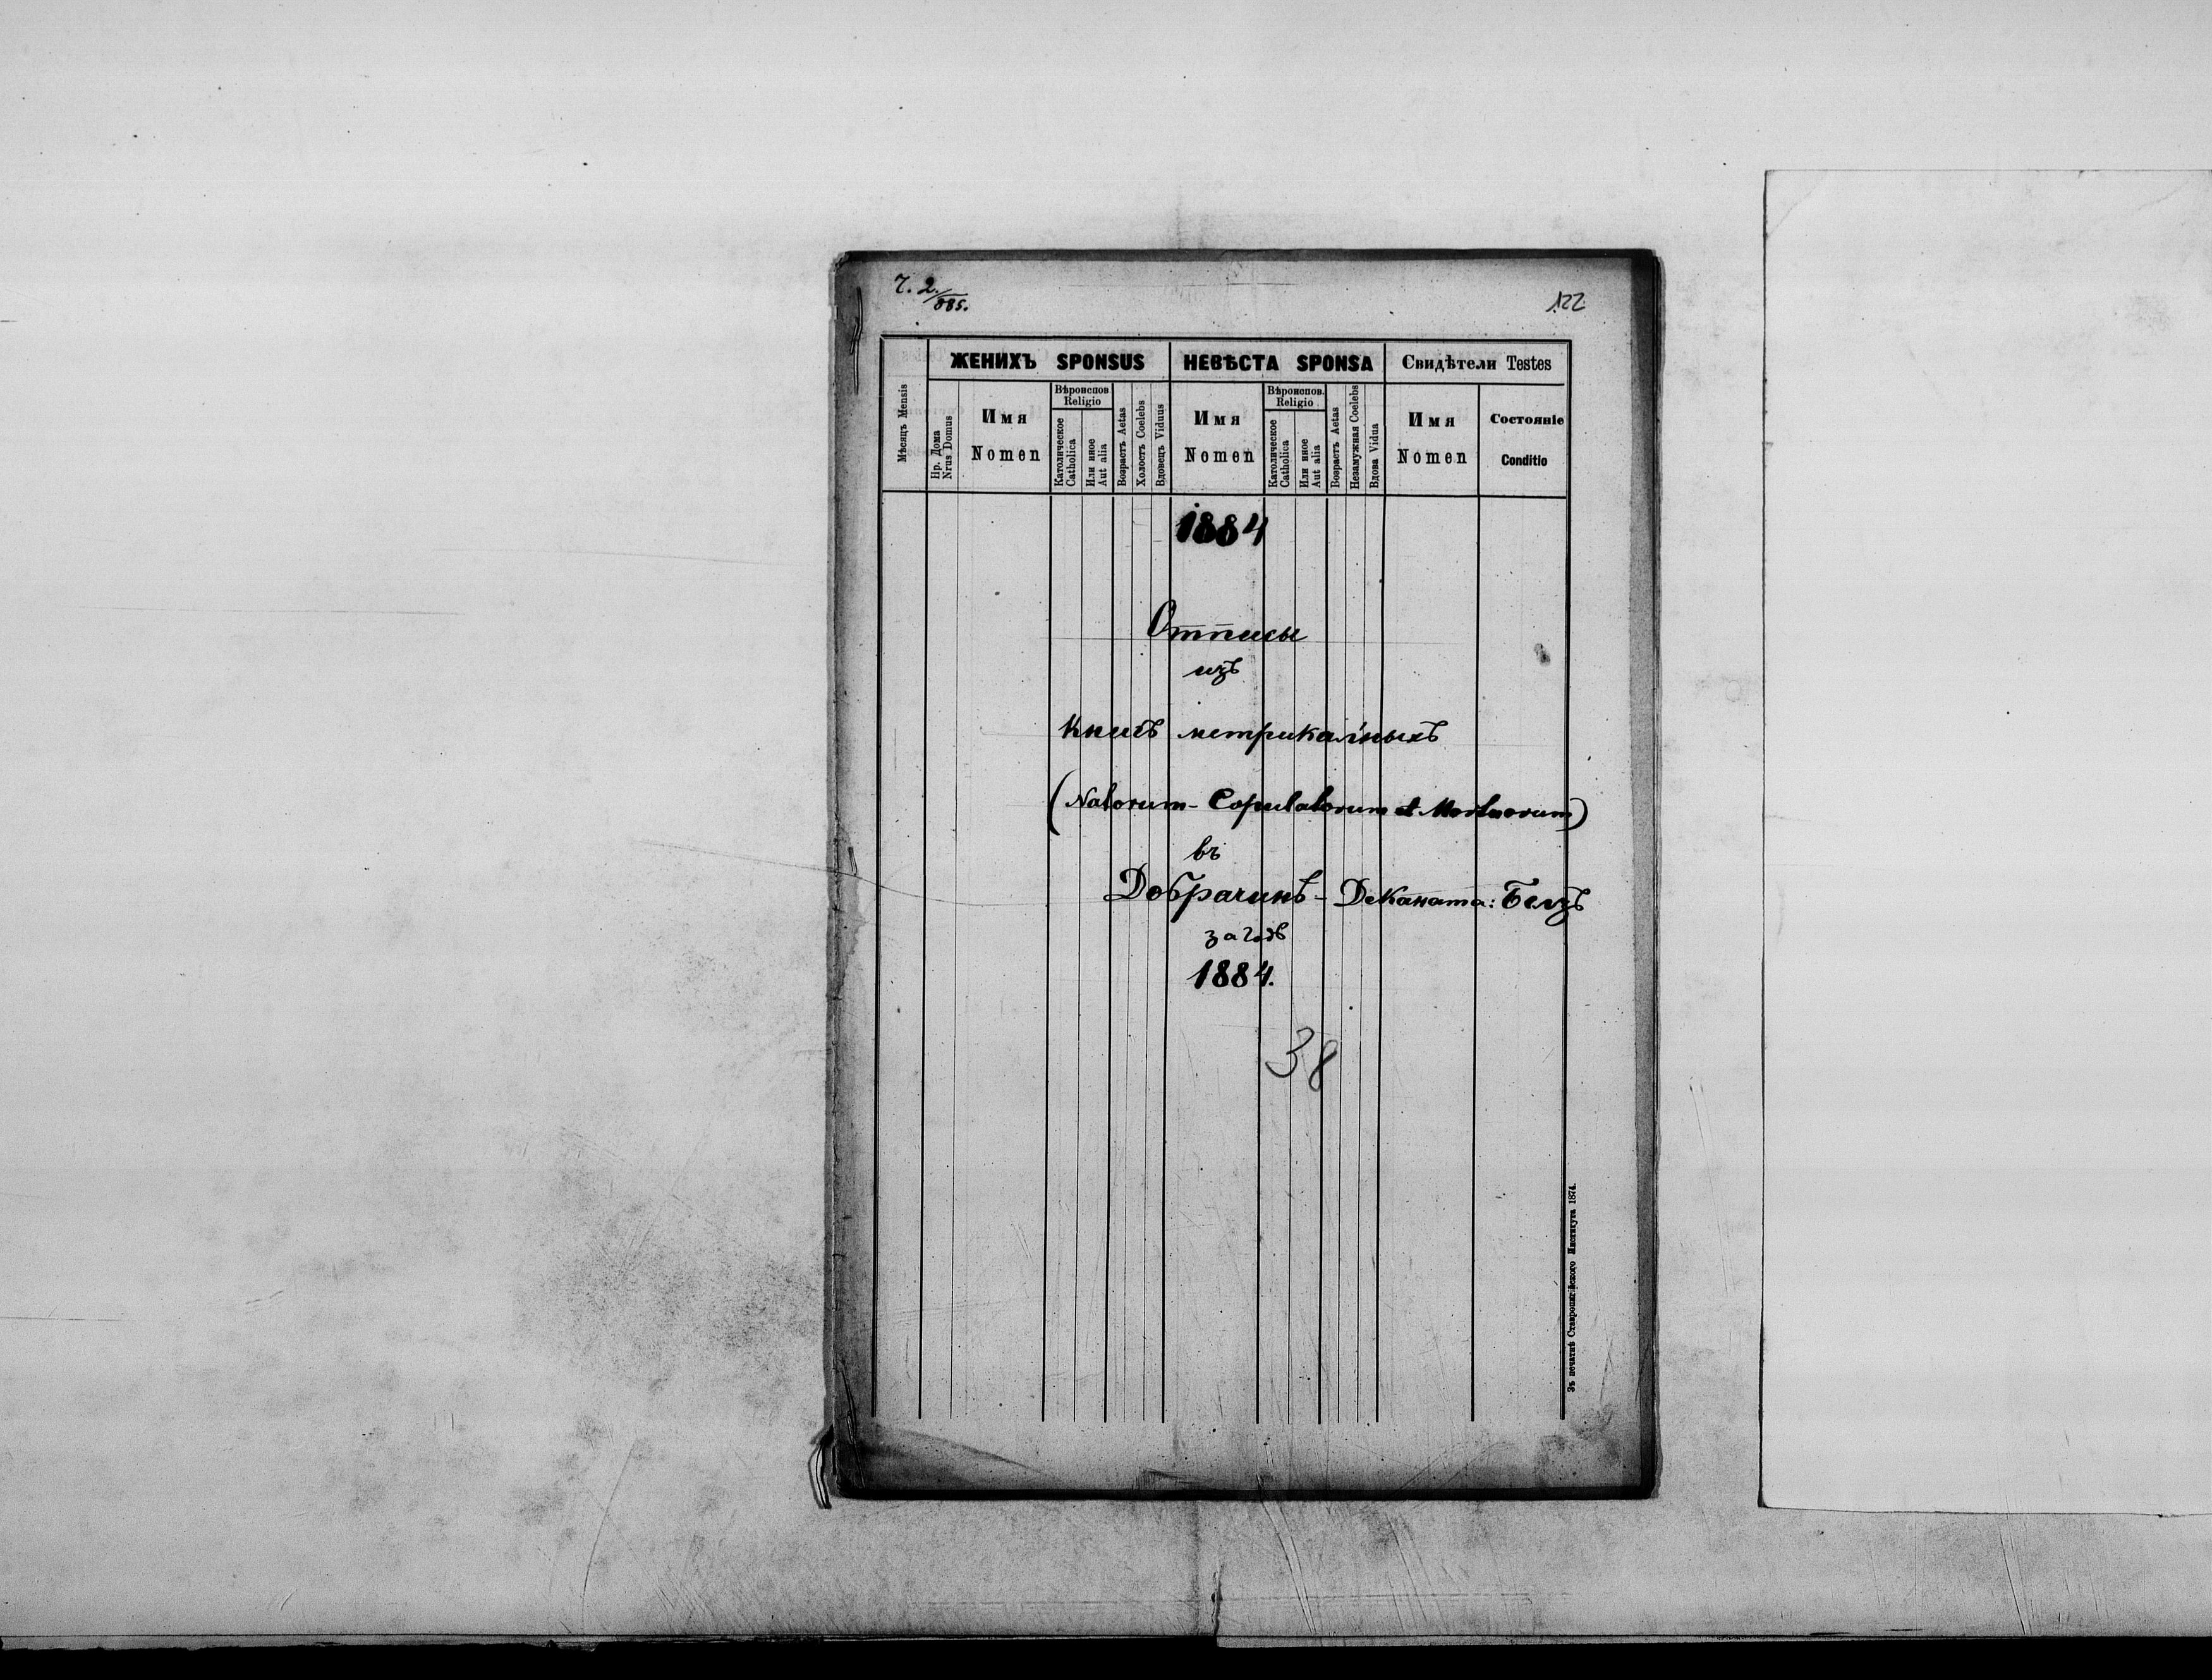 Ч. 2./885.
122
ЖЕНИХЪ SPONSUS НЕВѢСТА SPONSA Свидѣтели Testes
Мѣсяцъ Mensis
Нр. Дома
Nrus Domus
Имя
Nomen
Вѣроиспов.
Religio
Католическое
Catholica
Или иное
Aut alia
Возрастъ Aetas
Холостъ Coelebs
Вдовецъ Viduus
Имя
Nomen
Вѣроиспов.
Religio
Католическое
Catholica
Или иное
Aut alia
Возрастъ Aetas
Незамужная Coelebs
Вдова Vidua
Имя
Nomen
Состояніе
Conditio
1884
Отписы
изъ
книгъ метрикальныхъ
(Natorum - Copulatorum et Mortuorum)
въ
Добрачинѣ - Деканата: Белзъ
за годъ
1884.
38
Зъ печатнѣ Ставропигійского Института 1874.